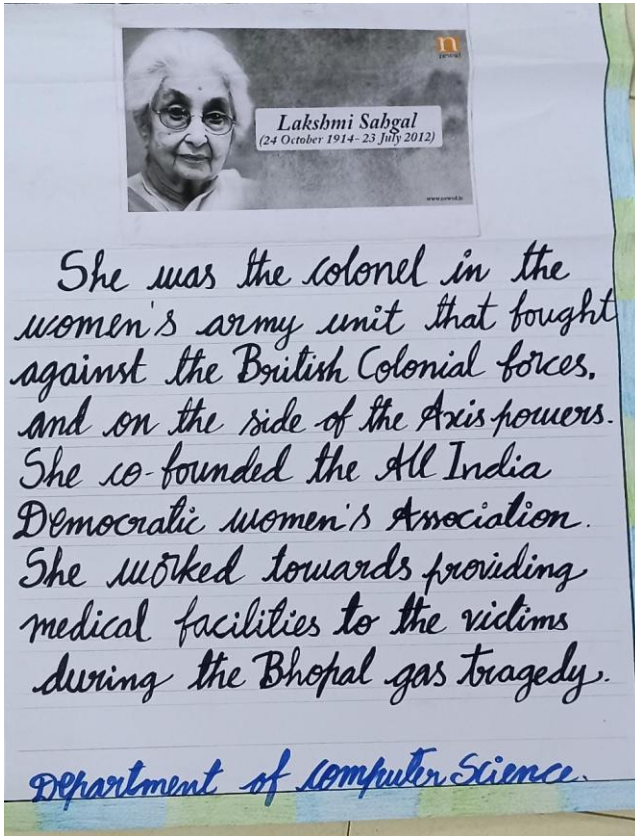 n
Lakshmi Sahgal
(24 October 1914- 23 July 2012)
She was the colonel in the
women's army unit that fought
against the British Colonial forces,
and on the side of the Axis powers.
She co-founded the All India
Democratic women's Association.
She worked towards providing
medical facilities to the victims
during the Bhopal gas tragedy.
Department of computer Science.